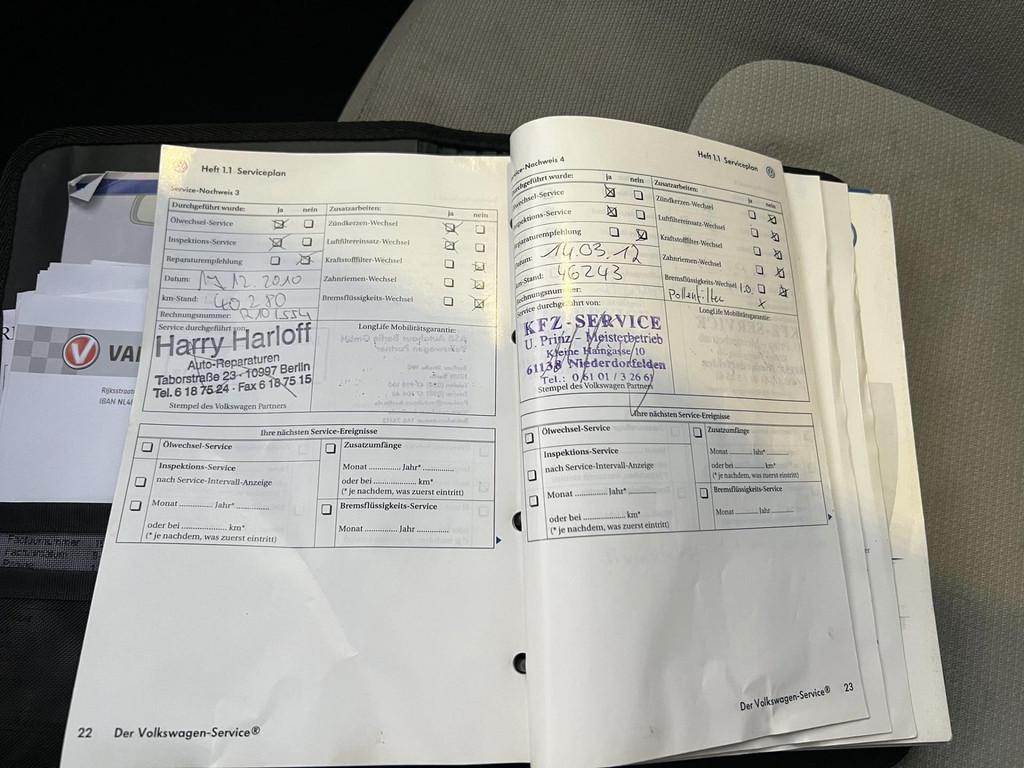 Heft 1.1 Serviceplan
Service-Nachweis 3
Durchgeführt wurde: ja nein Zusatzarbeiten: ja nein
Ölwechsel-Service Zündkerzen-Wechsel
Inspektions-Service Luftfiltereinsatz-Wechsel
Reparaturempfehlung Kraftstofffilter-Wechsel
Datum: 12. 2010 Zahnriemen-Wechsel
km-Stand: 40.280 Bremsflüssigkeits-Wechsel
Rechnungsnummer: R101554
Service durchgeführt von: LongLife Mobilitätsgarantie:
Harry Harloff
Auto-Reparaturen
Taborstraße 23 · 10997 Berlin
Tel. 6 18 76 24 · Fax 6 18 75 15
Stempel des Volkswagen Partners
Ihre nächsten Service-Ereignisse
Ölwechsel-Service Zusatzumfänge
Inspektions-Service
nach Service-Intervall-Anzeige
Monat ............ Jahr* ............
oder bei ............ km*
(* je nachdem, was zuerst eintritt)
Monat ............ Jahr* ............
oder bei ............ km*
(* je nachdem, was zuerst eintritt)
Bremsflüssigkeits-Service
Monat ............ Jahr ............
22 Der Volkswagen-Service®
Heft 1.1 Serviceplan
ce-Nachweis 4
urchgeführt wurde: ja nein Zusatzarbeiten: ja nein
lwechsel-Service Zündkerzen-Wechsel
spektions-Service Luftfiltereinsatz-Wechsel
eparaturempfehlung Kraftstofffilter-Wechsel
atum: 14.03.12 Zahnriemen-Wechsel
m-Stand: 46243 Bremsflüssigkeits-Wechsel
Rechnungsnummer: Pollenfilter x
Service durchgeführt von: LongLife Mobilitätsgarantie:
KFZ-SERVICE
U. Prinz - Meisterbetrieb
Kleine Haingasse 10
61138 Niederdorfelden
Tel.: 0 61 01 / 3 26 67
Stempel des Volkswagen Partners
Ihre nächsten Service-Ereignisse
Ölwechsel-Service Zusatzumfänge
Inspektions-Service
nach Service-Intervall-Anzeige
Monat ............ Jahr* ............
oder bei ............ km*
(* je nachdem, was zuerst eintritt)
Monat ............ Jahr* ............
oder bei ............ km*
(* je nachdem, was zuerst eintritt)
Bremsflüssigkeits-Service
Monat ............ Jahr ............
Der Volkswagen-Service® 23
VAN
Rijksstraat
IBAN NL4
Factuurnummer
Factuurdatum